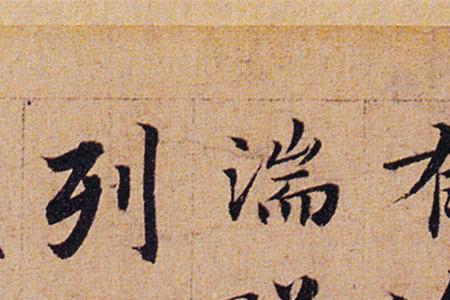 有
湍
列